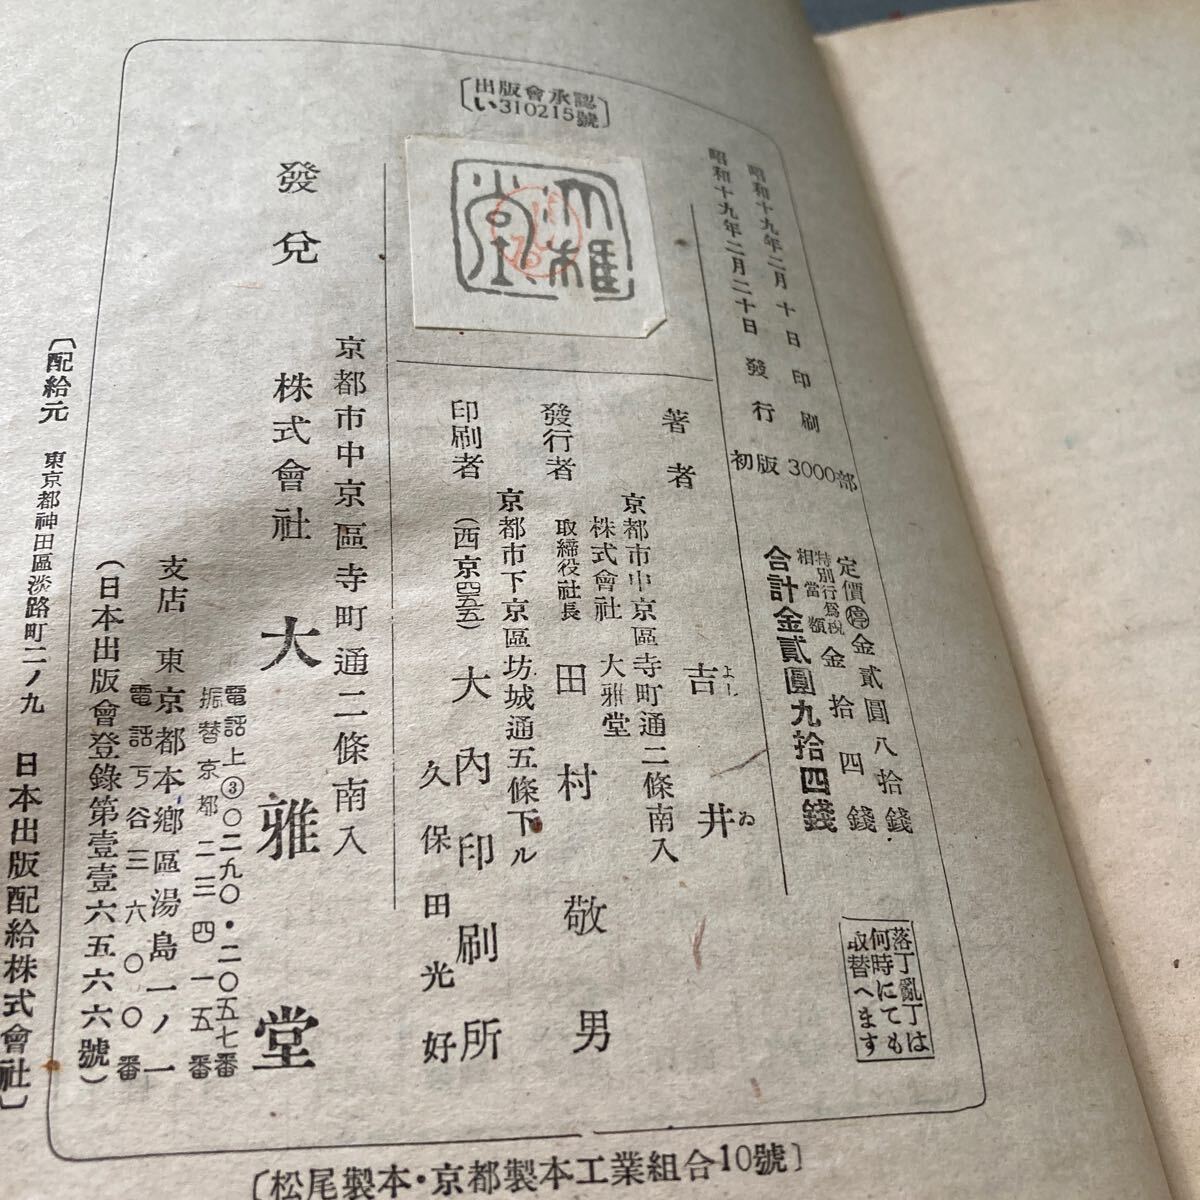 〔出版會承認
い310215號〕
昭和十九年二月十日印刷
昭和十九年二月二十日發行
初版3000部
定價㊡金貳圓八拾錢
特別行爲税
相當額
金拾四錢
合計金貳圓九拾四錢
落丁亂丁は
何時にても
取替へます
大雅堂
著者 吉井
よしゐ
京都市中京區寺町通二條南入
株式會社 大雅堂
發行者 取締役社長 田村敬男
京都市下京區坊城通五條下ル
印刷者 (西京四五) 大內印刷所
久保田光好
京都市中京區寺町通二條南入
發兌 株式會社 大雅堂
電話上③〇二九〇・二〇五七番
振替京都二三四一五番
支店 東京都本鄕區湯島一ノ一
電話下谷三六〇〇番
(日本出版會登錄第壹壹六五六六號)
〔配給元 東京都神田區淡路町二ノ九 日本出版配給株式會社〕
〔松尾製本・京都製本工業組合10號〕